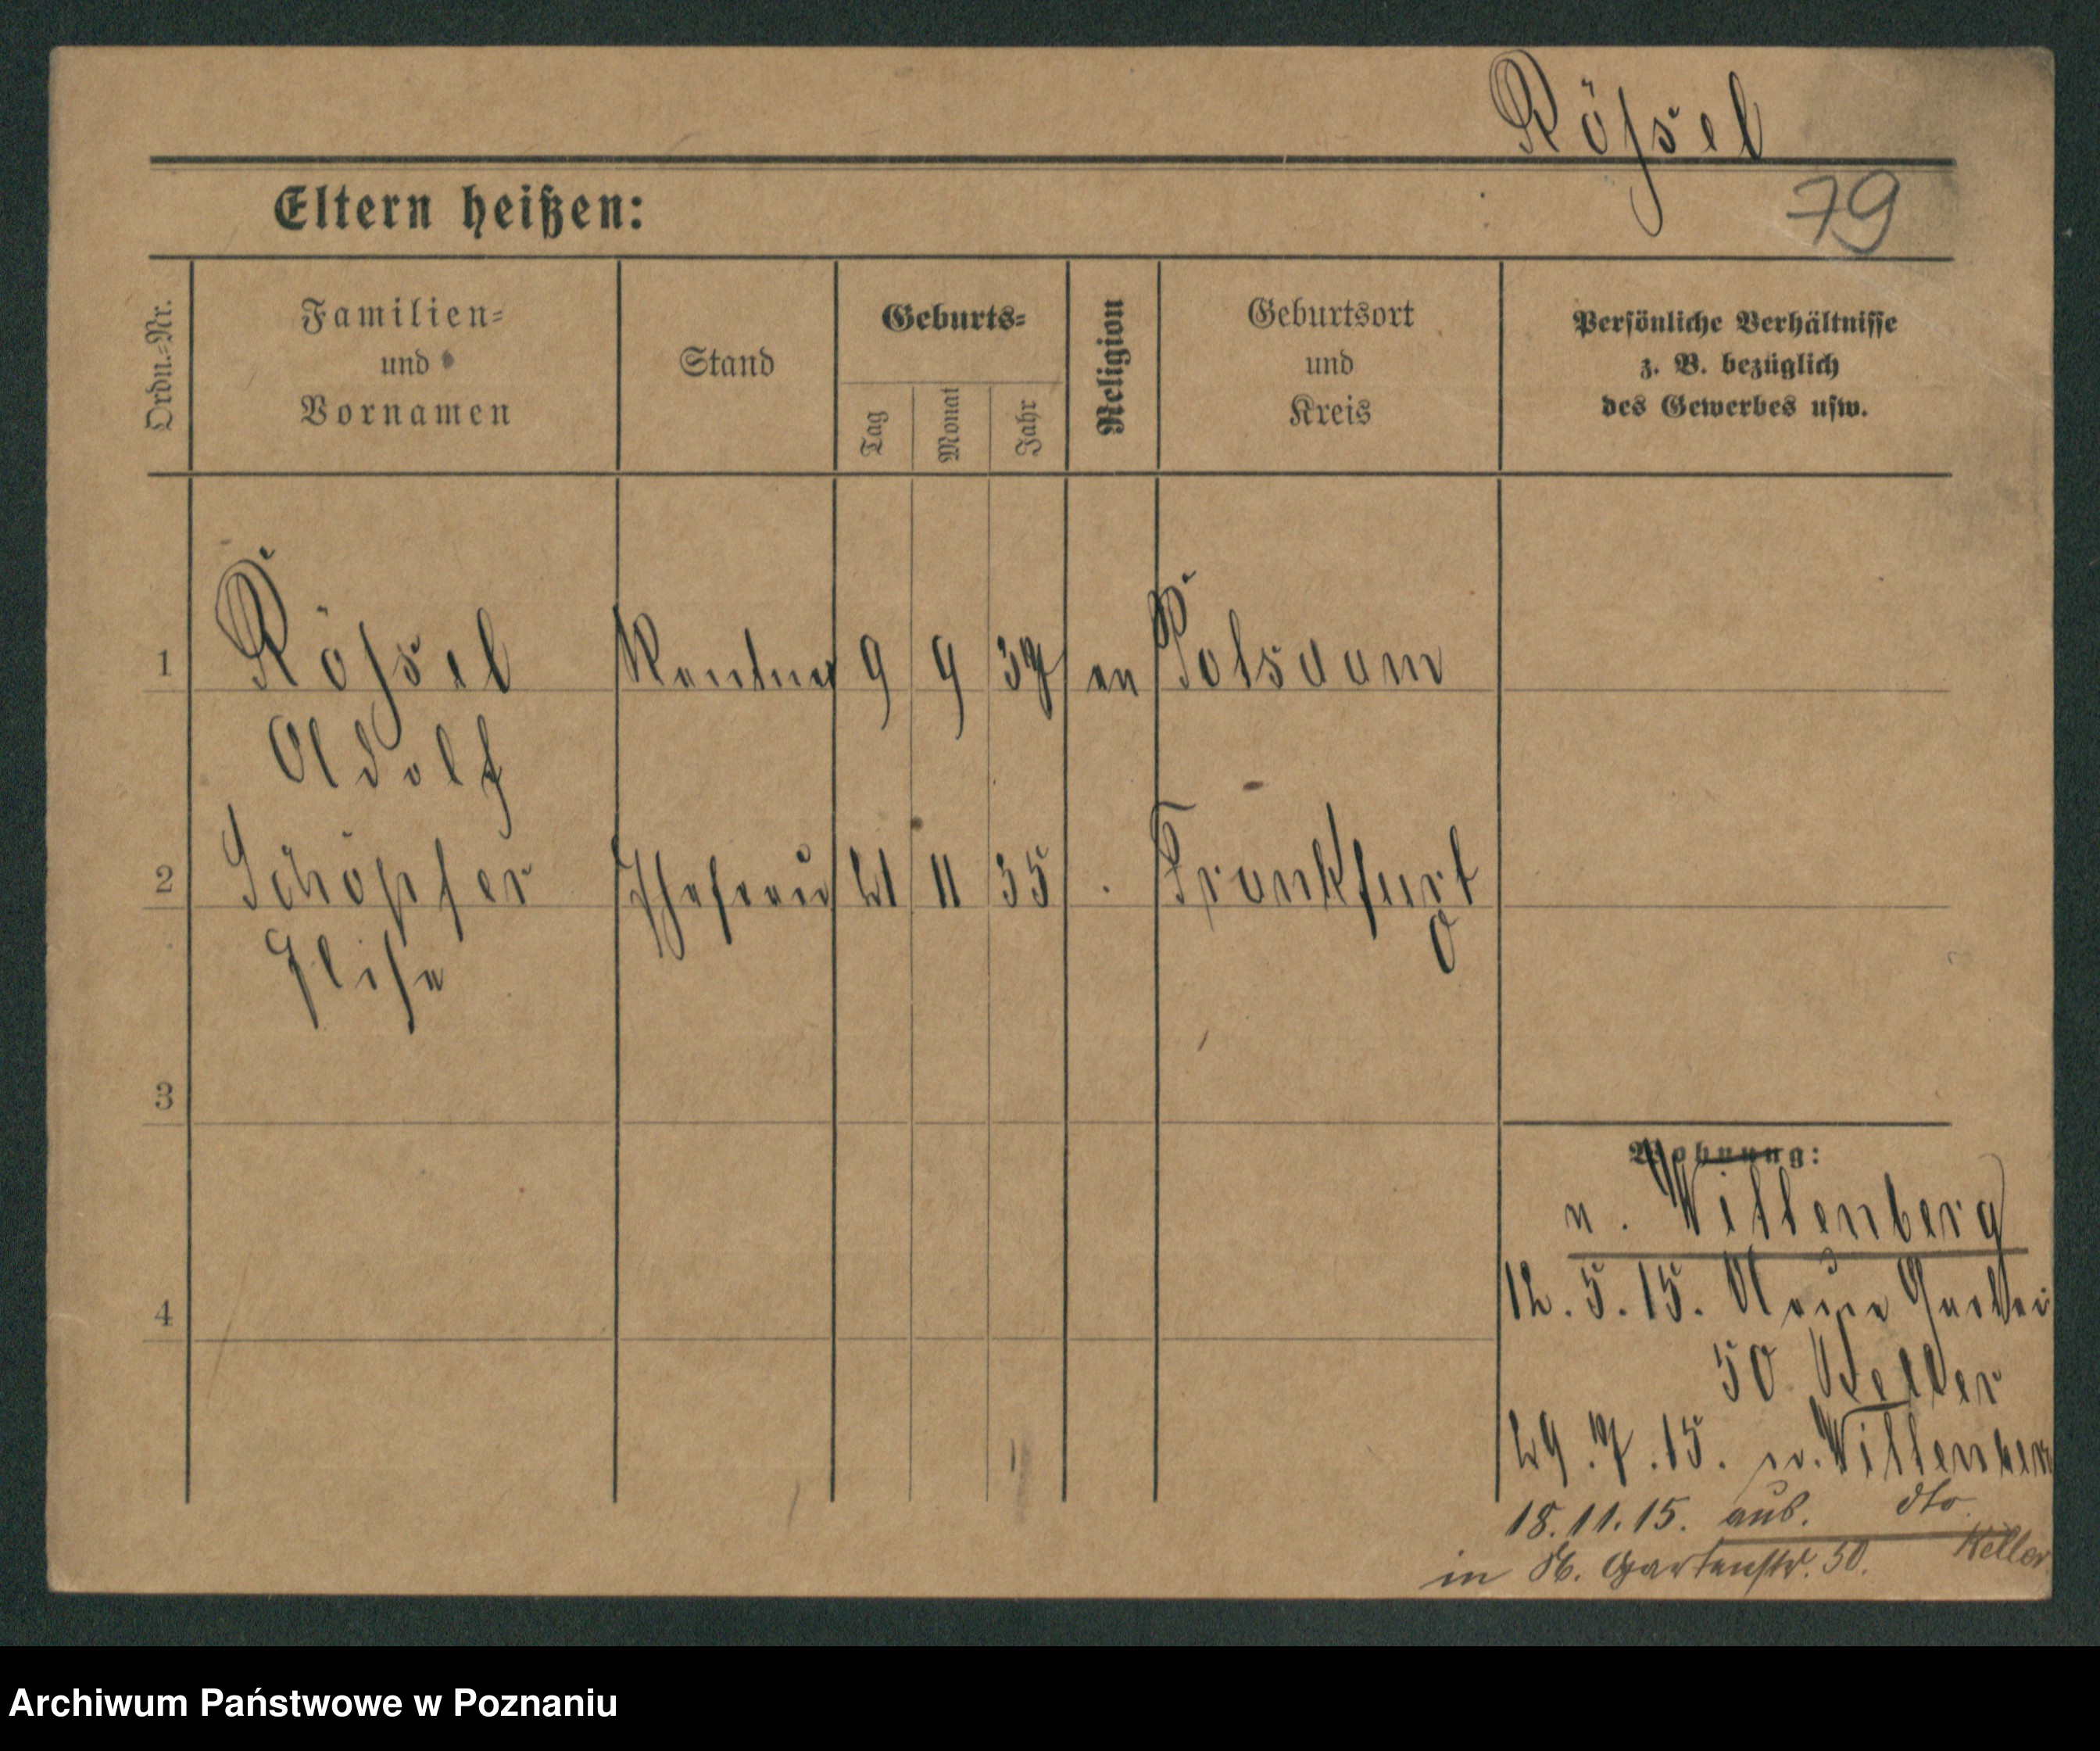 Rößel
79
Eltern heißen:
Ordn.-Nr.
Familien-
und
Vornamen
Stand
Geburts-
Tag
Monat
Jahr
Religion
Geburtsort
und
Kreis
Persönliche Verhältnisse
z. B. bezüglich
des Gewerbes usw.
1 Rößel Rentner 9 9 37 ev Potsdam
Adolf
2 Schöpfer Ehefrau 21 11 35 Frankfurt
O
Elise
3
4
Wohnung:
n. Wittenberg
12.5.15. Neue Garten
50
29.7.15. n. Wittenberg
18.11.15. aus. dto
in N. Gartenstr. 50. Keller
Archiwum Państwowe w Poznaniu